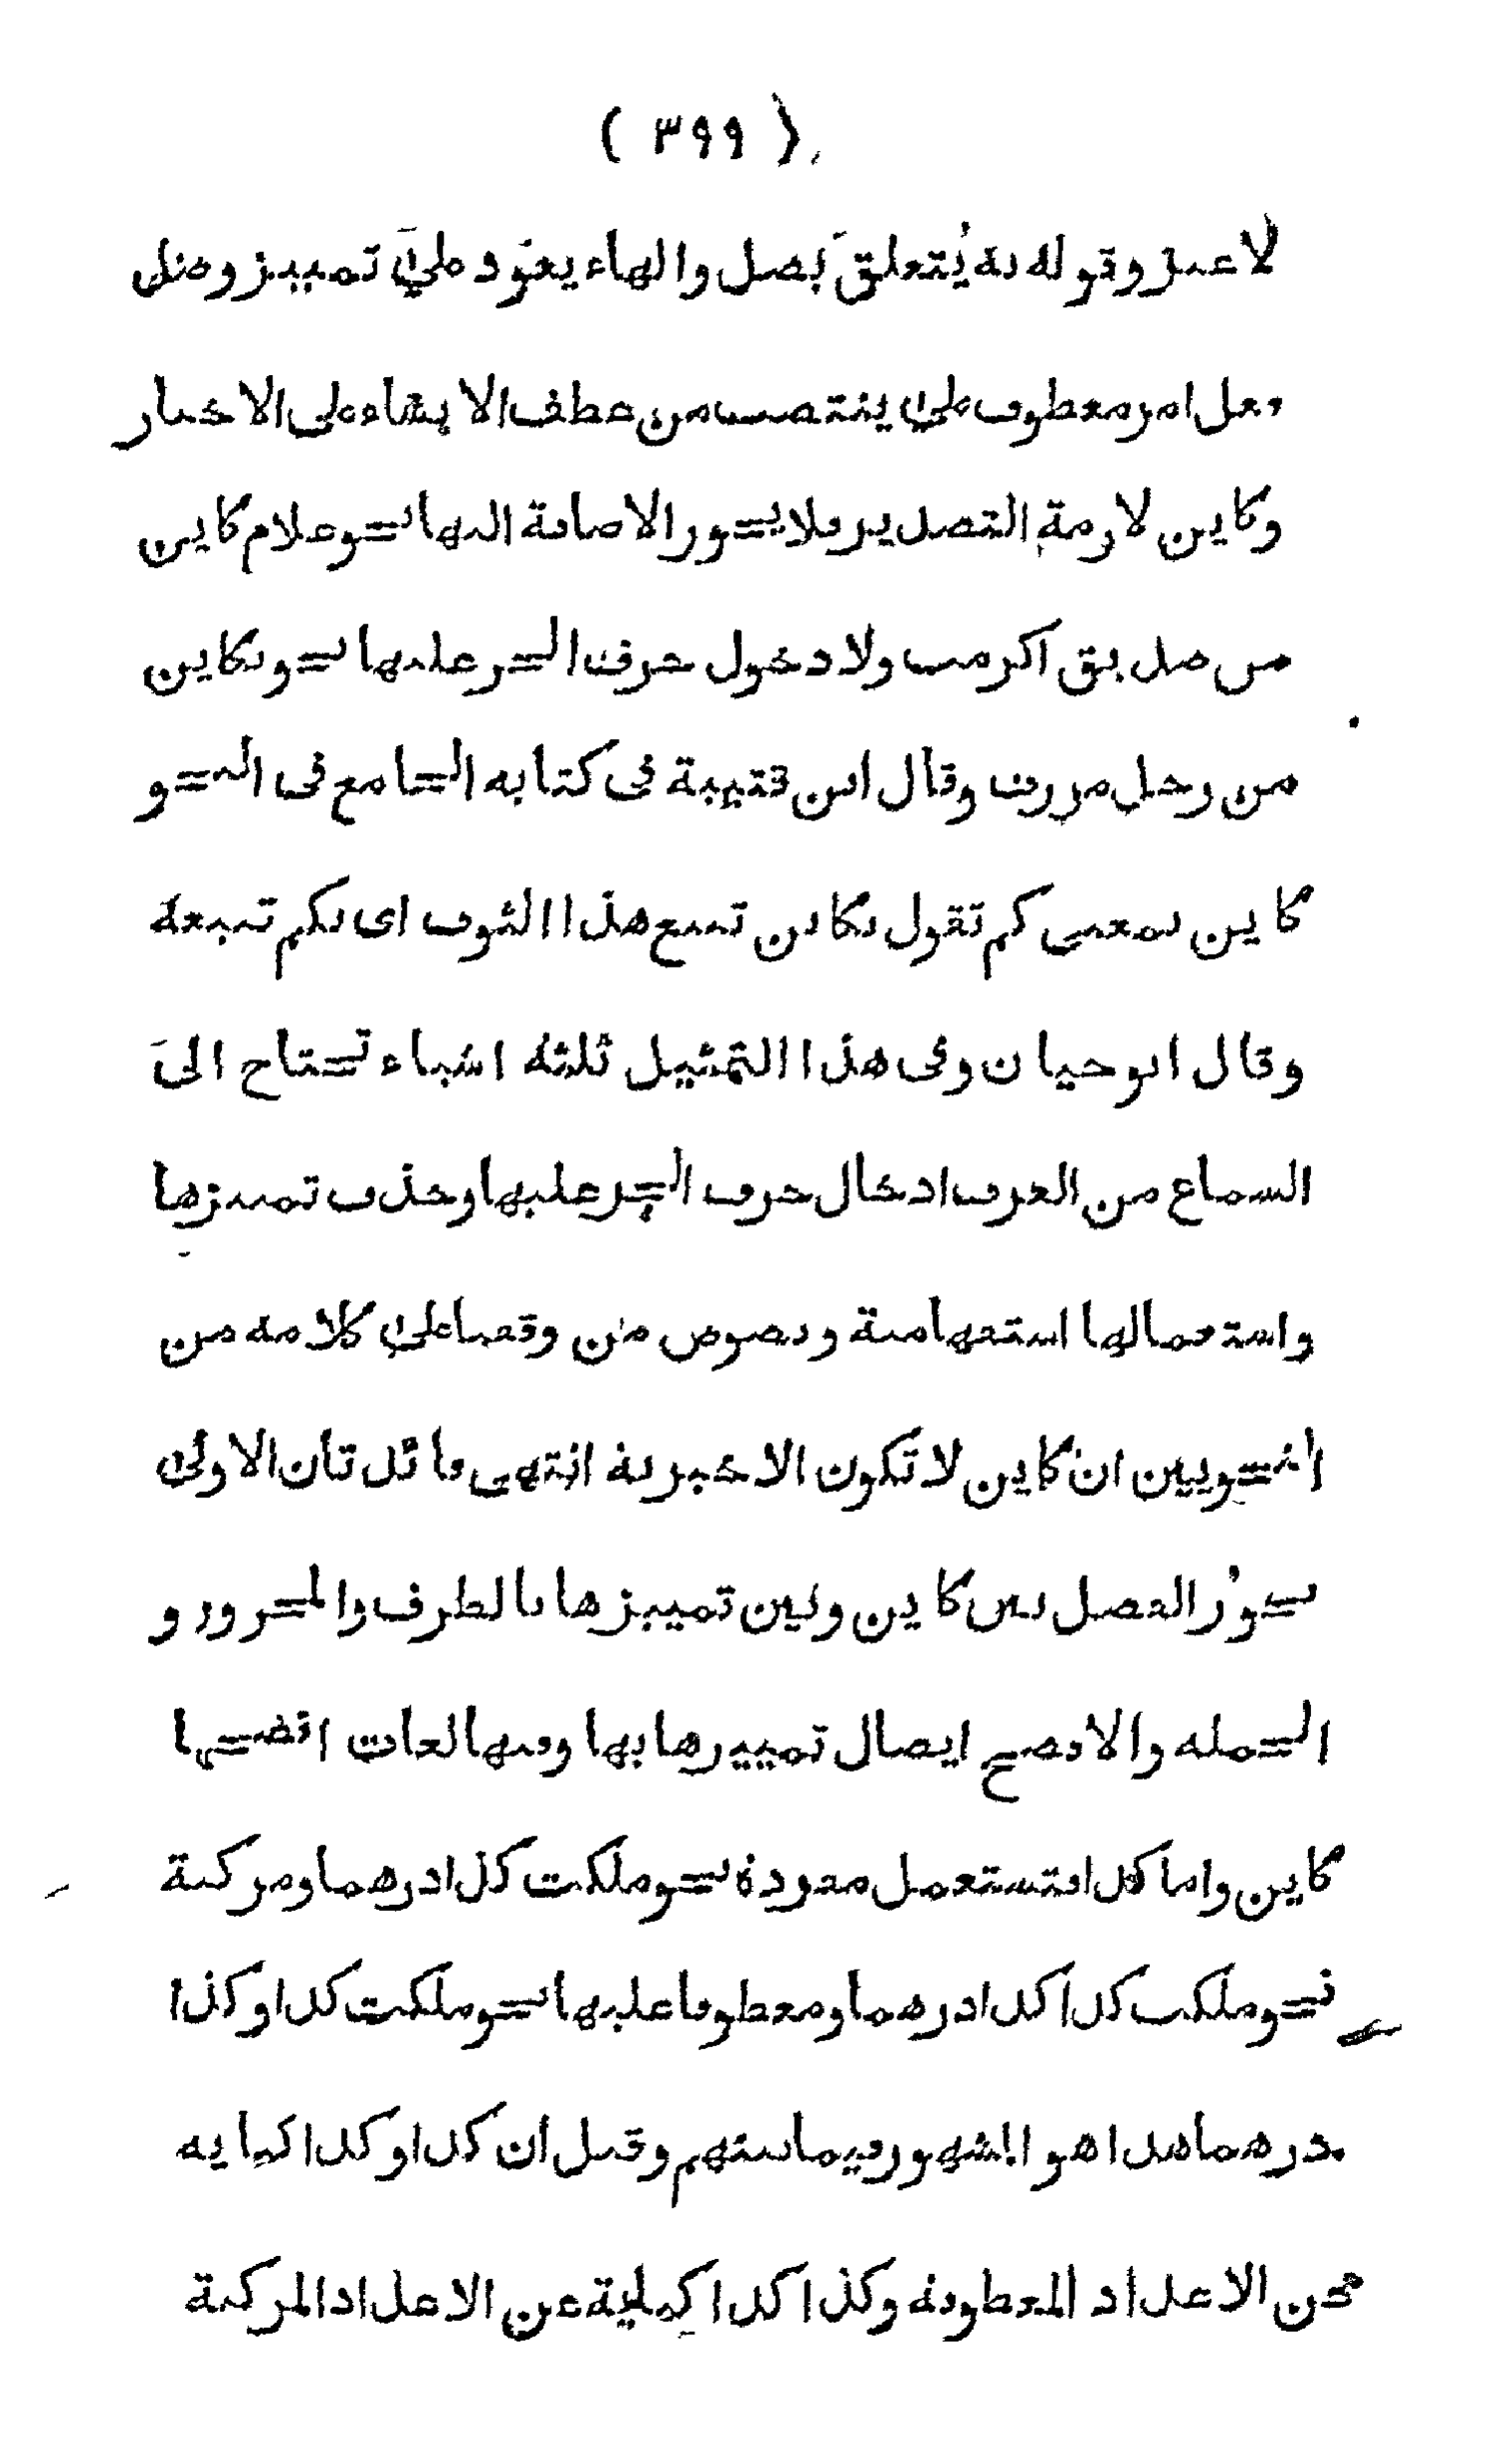 ( ٣٩٩ )
لا غير وقوله به يتعلق بصل والهاء يعود على تمييز وصل
فعل امر معطوف على ينتصب من عطف الانشاء على الاخبار
وكاين لازمة التصدير فلا يجوز الاضافة اليها نحو غلام كاين
من صديق اكرمت ولا دخول حرف الجر عليها نحو بكاين
من رجل مررت وقال ابن قتيبة فى كتابه الجامع فى النحو
كاين بمعنى كم تقول بكاين تبيع هذا الثوب اى بكم تبيعه
وقال ابو حيان وفى هذا التمثيل ثلثه اشياء تحتاج الى
السماع من العرب ادخال حرف الجر عليها وحذف تمييزها
واستعمالها استفهامية ونصوص من وقفنا على كلامه من
النحويين ان كاين لا تكون الا خبرية انتهى فائدتان الاولى
يجوز الفصل بين كاين وبين تمييزها بالظرف والمجرور و
الجمله والافصح ايصال تمييزها بها وفيها لغات افصحها
كاين واما كذا فتستعمل مفردة نحو ملكت كذا درهما ومركبة
نحو ملكت كذا كذا درهما ومعطوفا عليها نحو ملكت كذا وكذا
درهما هذا هو المشهور فيما بينهم وقيل ان كذا وكذا كناية
عن الاعداد المعطوفة وكذا كذا كناية عن الاعداد المركبة